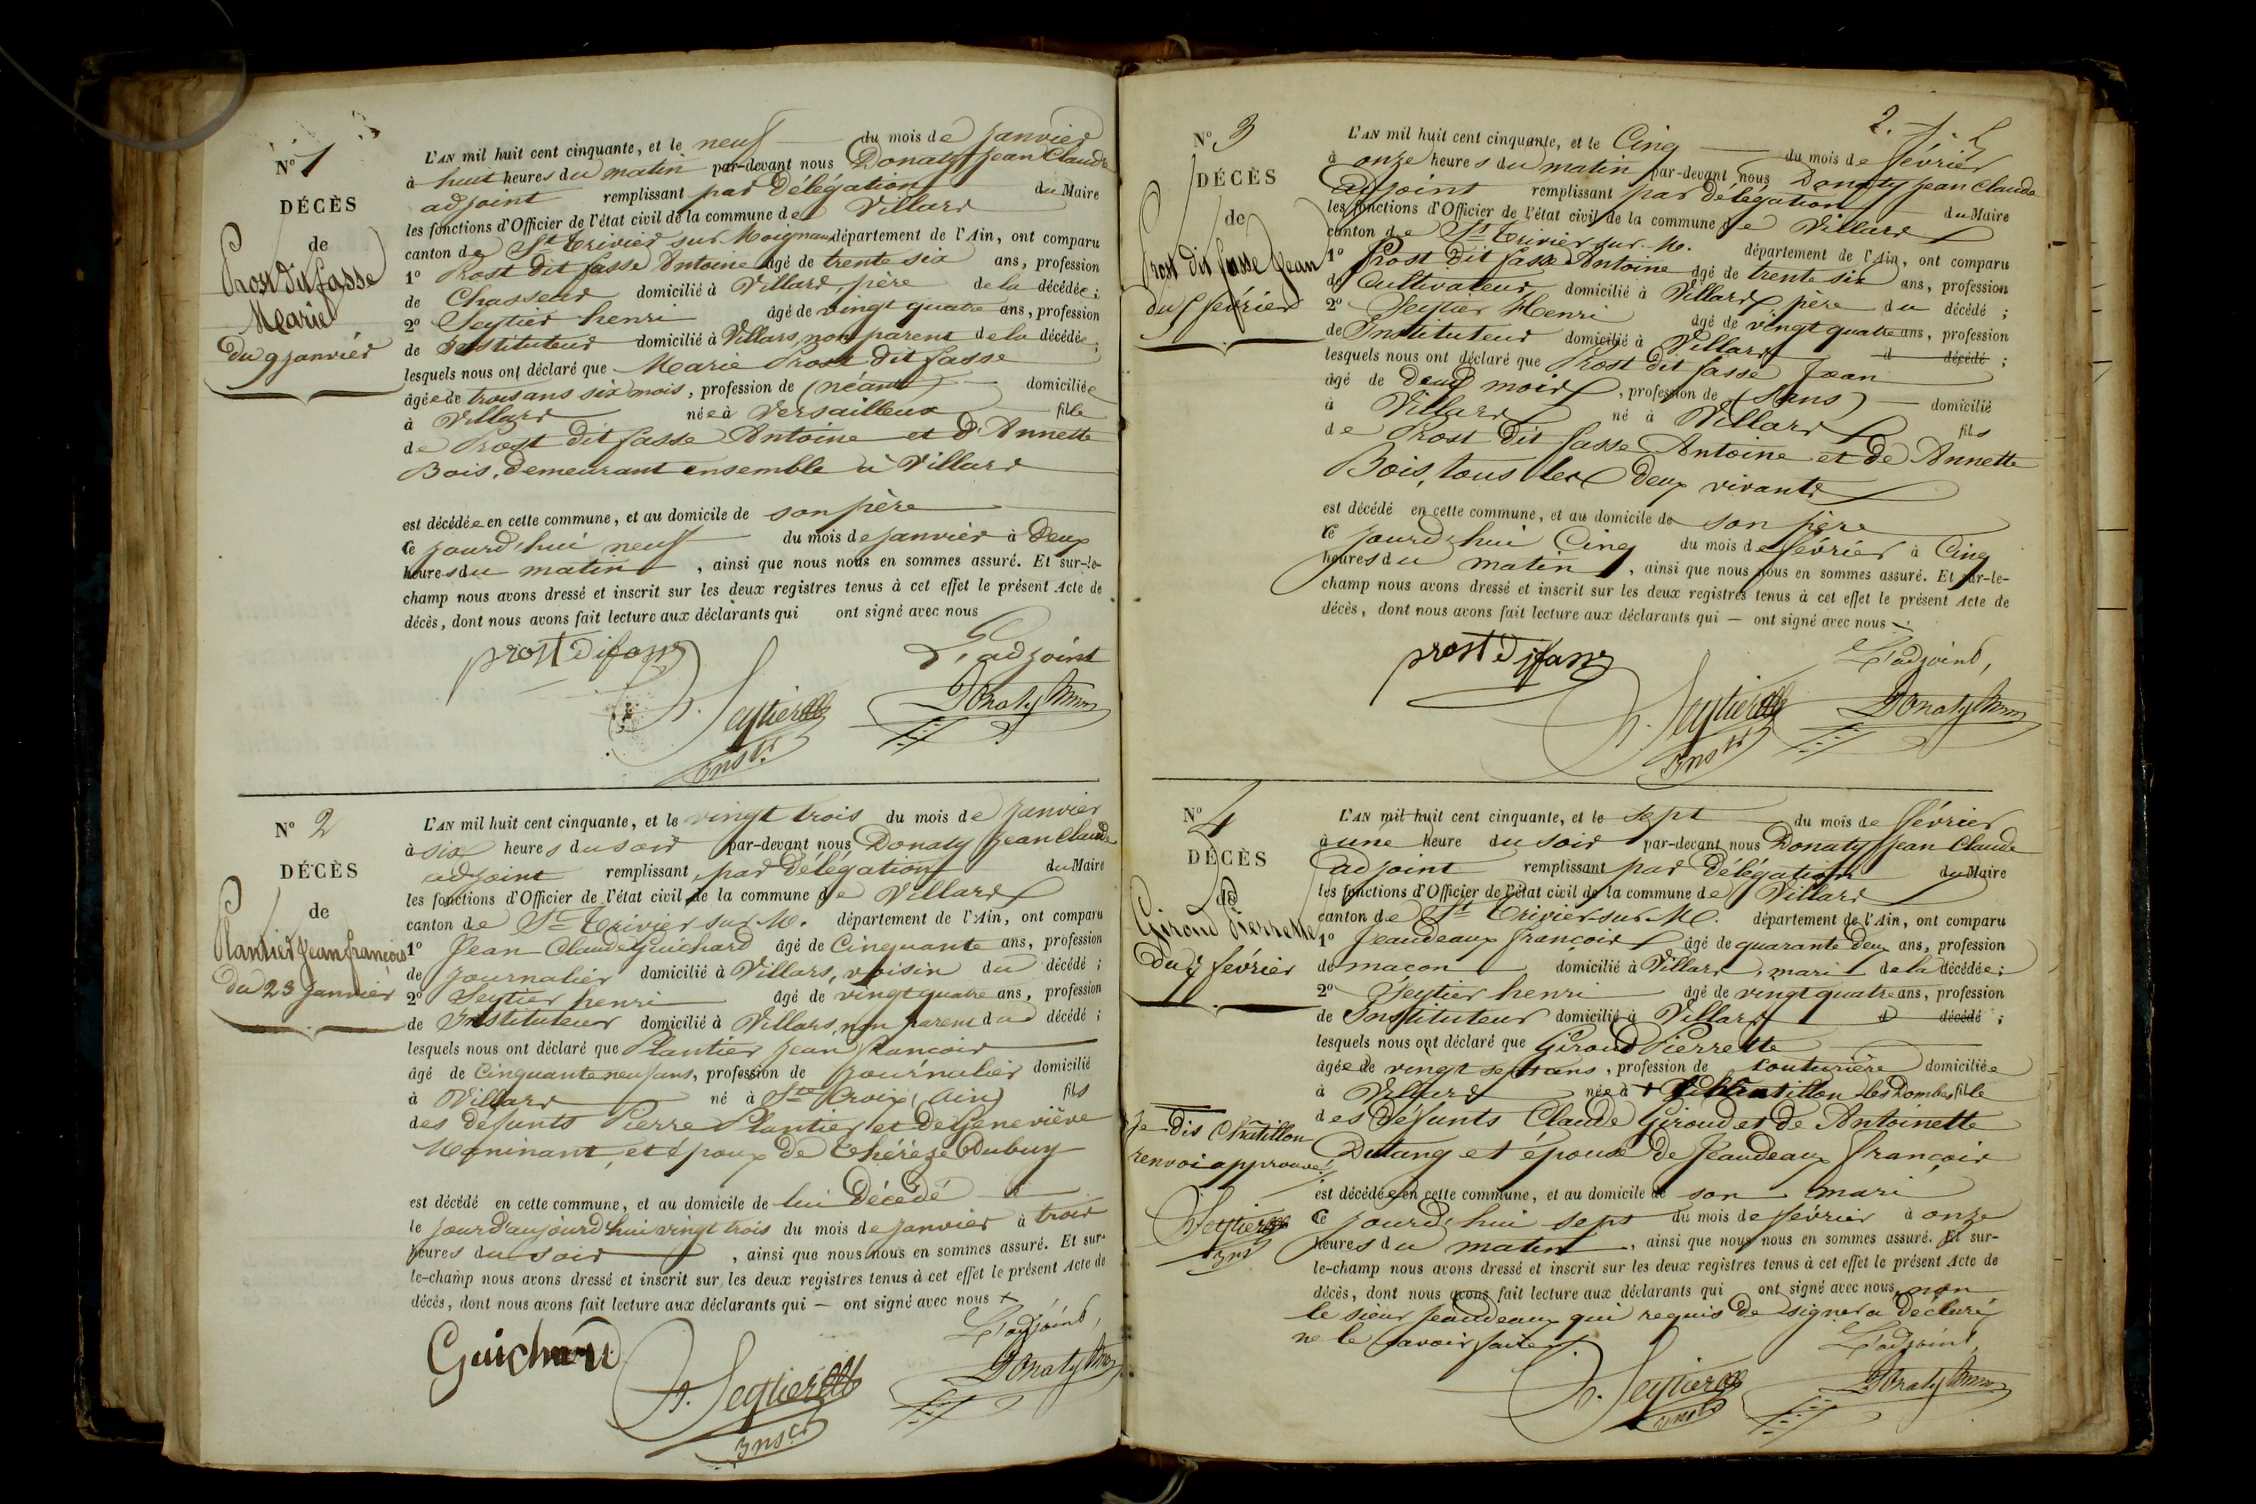 N° 1
DÉCÈS
de
Prost dit fasse
Marie
du 9 janvier
L'AN mil huit cent cinquante, et le neuf du mois de janvier
à huit heures du matin par-devant nous Donaty Jean Claude
adjoint remplissant par Délégation du Maire
les fonctions d'Officier de l'état civil de la commune de Villars
canton de St Trivier sur Moignans département de l'Ain, ont comparu
1° Prost dit fasse Antoine âgé de trente six ans, profession
de Chasseur domicilié à Villars, père de la décédée ;
2° Seytier henri âgé de vingt quatre ans, profession
de Instituteur domicilié à Villars, non parent de la décédée ;
lesquels nous ont déclaré que Marie Prost dit fasse
âgée de trois ans six mois, profession de (néant) domiciliée
à Villars née à Versailleux fille
de Prost dit fasse Antoine et d'Annette
Bois, demeurant ensemble à Villars
est décédée en cette commune, et au domicile de son père
Ce jourd'hui neuf du mois de janvier à Deux
heures du matin, ainsi que nous nous en sommes assuré. Et sur-le-
champ nous avons dressé et inscrit sur les deux registres tenus à cet effet le présent Acte de
décès, dont nous avons fait lecture aux déclarants qui ont signé avec nous
prost difass
L'adjoint
h. Seytier
Donaty
Instr
N° 2
DÉCÈS
de
Plantier Jean françois
du 23 janvier
L'AN mil huit cent cinquante, et le vingt trois du mois de janvier
à six heures du soir par-devant nous Donaty Jean Claude
adjoint remplissant par Délégation du Maire
les fonctions d'Officier de l'état civil de la commune de Villars
canton de St Trivier sur M. département de l'Ain, ont comparu
1° Jean Claude Guichard âgé de Cinquante ans, profession
de journalier domicilié à Villars, voisin du décédé ;
2° Seytier henri âgé de vingt quatre ans, profession
de Instituteur domicilié à Villars, non parent du décédé ;
lesquels nous ont déclaré que Plantier Jean françois
âgé de Cinquante neuf ans, profession de journalier domicilié
à Villars né à Ste Croix (Ain) fils
des défunts Pierre Plantier et de Geneviève
Moninant, et époux de Thérèze Dubuy
est décédé en cette commune, et au domicile de lui Décédé
le jour d'aujourd'hui vingt trois du mois de janvier à trois
heures du soir, ainsi que nous nous en sommes assuré. Et sur-
le-champ nous avons dressé et inscrit sur les deux registres tenus à cet effet le présent Acte de
décès, dont nous avons fait lecture aux déclarants qui — ont signé avec nous
L'adjoint,
Guichard
h. Seytier
Donaty
Instr
2.
N° 3
DÉCÈS
de
Prost dit fasse Jean
du 5 février
L'AN mil huit cent cinquante, et le Cinq du mois de février
à onze heures du matin par-devant nous Donaty Jean Claude
adjoint remplissant par Délégation du Maire
les fonctions d'Officier de l'état civil de la commune de Villars
canton de St Trivier sur M. département de l'Ain, ont comparu
1° Prost dit fasse Antoine âgé de trente six ans, profession
de Cultivateur domicilié à Villars père du décédé ;
2° Seytier Henri âgé de vingt quatre ans, profession
de Instituteur domicilié à Villars d décédé ;
lesquels nous ont déclaré que Prost dit fasse Jean
âgé de Deux mois, profession de (Sans) domicilié
à Villars né à Villars fils
de Prost dit fasse Antoine et de Annette
Bois, tous les deux vivants
est décédé en cette commune, et au domicile de son père
ce jourd'hui Cinq du mois de février à Cinq
heures du matin, ainsi que nous nous en sommes assuré. Et sur-le-
champ nous avons dressé et inscrit sur les deux registres tenus à cet effet le présent Acte de
décès, dont nous avons fait lecture aux déclarants qui — ont signé avec nous
prost difass
L'adjoint,
h. Seytier
Donaty
Instr
N° 4
DÉCÈS
de
Giroud Pierrette
du 7 février
L'AN mil huit cent cinquante, et le sept du mois de février
à une heure du soir par-devant nous Donaty Jean Claude
adjoint remplissant par Délégation du Maire
les fonctions d'Officier de l'état civil de la commune de Villars
canton de St Trivier sur M. département de l'Ain, ont comparu
1° Jeaudeaux françois âgé de quarante deux ans, profession
de macon domicilié à Villars, mari de la décédée ;
2° Seytier henri âgé de vingt quatre ans, profession
de Instituteur domicilié à Villars d décédé ;
lesquels nous ont déclaré que Giroud Pierrette
âgée de vingt sept ans, profession de couturière domiciliée
à Villars née à + Chatillon les Dombes fille
des défunts Claude Giroud et de Antoinette
Dutang et épouse de Jeaudeaux françois
Je dis Châtillon
renvoi approuvé
h. Seytier
Inst
est décédée en cette commune, et au domicile de son mari
Ce jourd'hui sept du mois de février à onze
heures du matin, ainsi que nous nous en sommes assuré. Et sur-
le-champ nous avons dressé et inscrit sur les deux registres tenus à cet effet le présent Acte de
décès, dont nous avons fait lecture aux déclarants qui ont signé avec nous, non
le sieur Jeaudeaux qui requis de signer a déclaré
ne le savoir faire
L'adjoint,
h. Seytier
Donaty
Instr